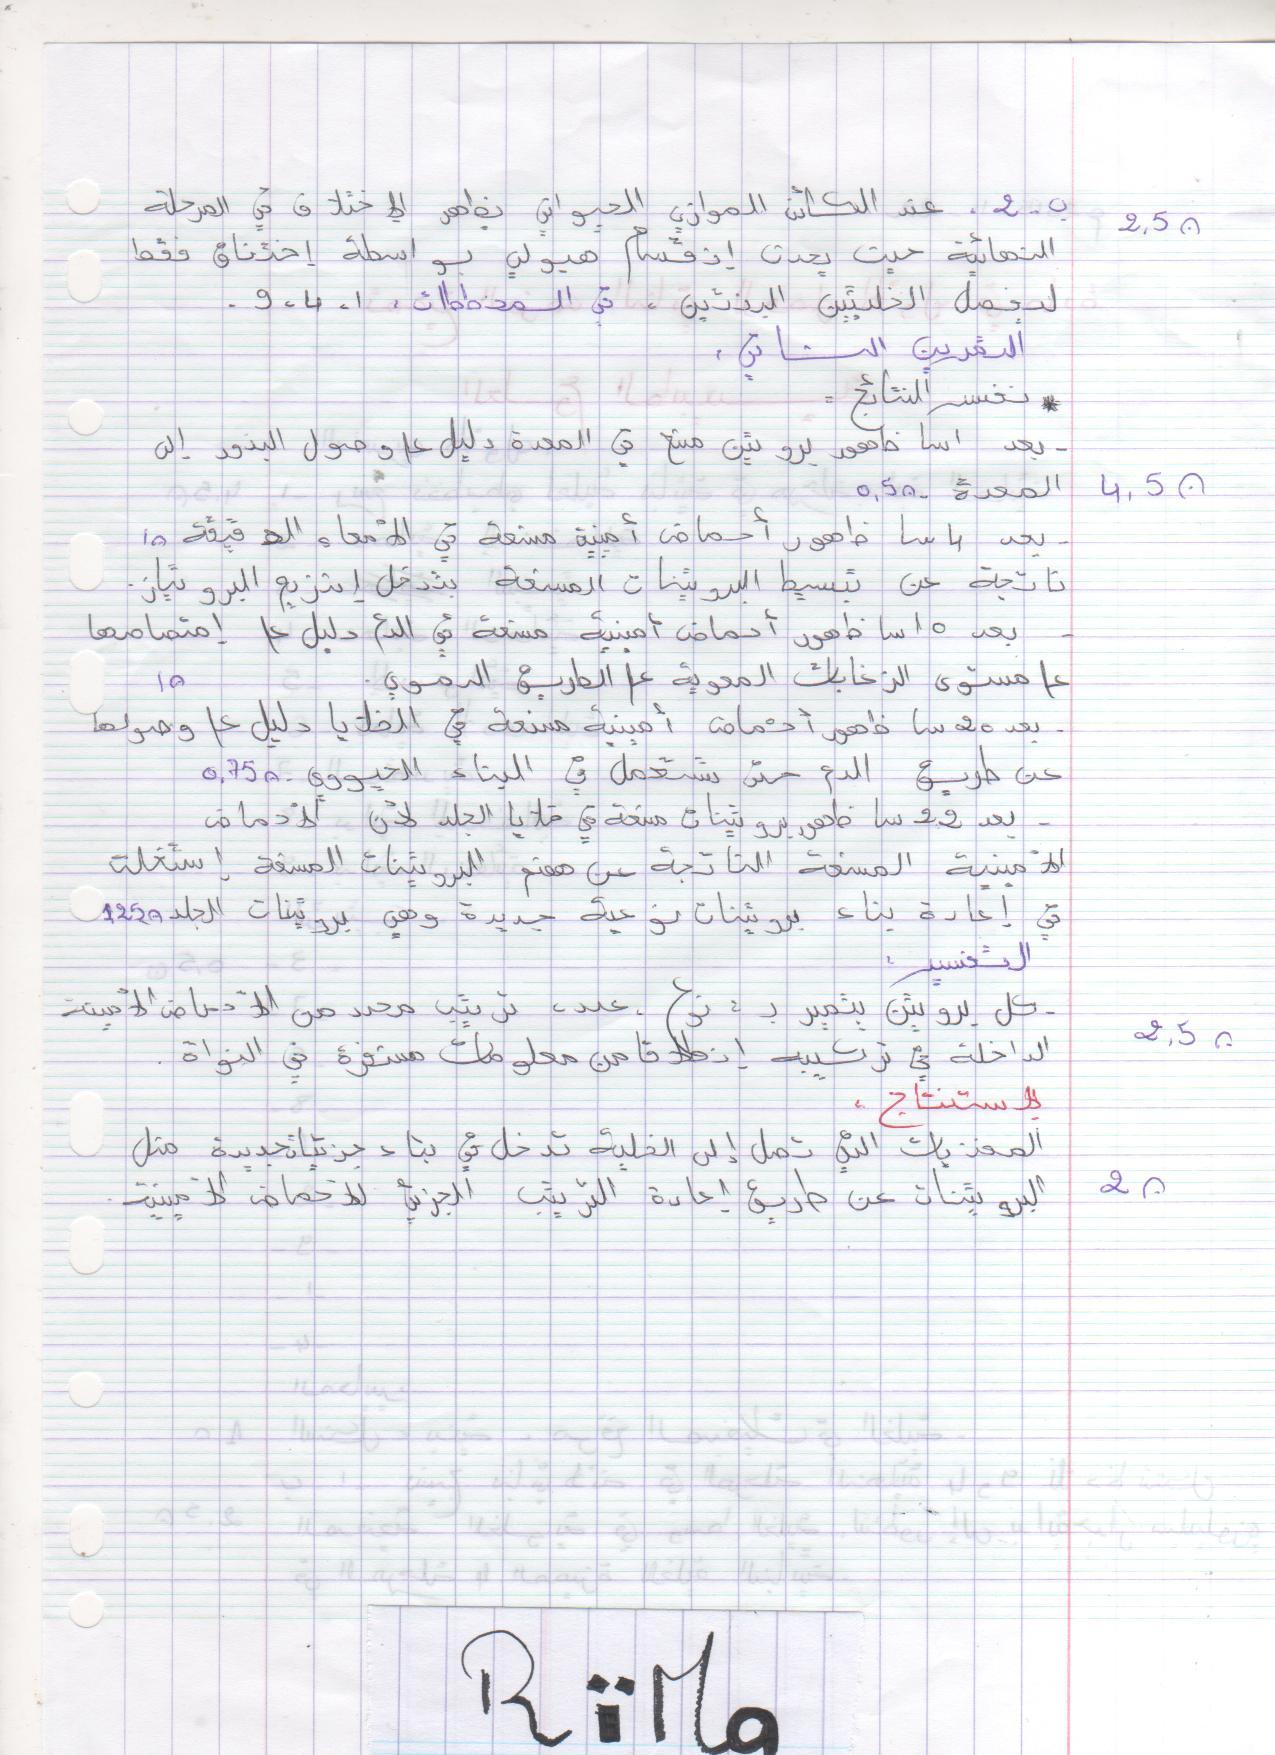 ب-2. عند الكائن الموازي الحيواني يظهر الاختلاف في المرحلة 2,5ن
النهائية حيث يحدث إنقسام هيولي بواسطة إختناق فقط
لفصل الخليتين البنتين، في المخططات: 1، 4، 9.
التمرين الثاني:
* تفسير النتائج:
- بعد 1سا ظهور بروتين مشع في المعدة دليل ع/ وصول البذور إلى
المعدة - 0,5ن 4,5ن
- بعد 4 سا ظهور أحماض أمينية مشعة في الأمعاء الدقيقة 1ن
ناتجة عن تبسيط البروتينات المشعة بتدخل إنزيم البروتياز.
- بعد 10سا ظهور أحماض أمينية مشعة في الدم دليل ع/ إمتصاصها
ع/ مستوى الزغابات المعوية ع/ الطريق الدموي. 1ن
- بعد 20 سا ظهور أحماض أمينية مشعة في الخلايا دليل ع/ وصولها
عن طريق الدم حتى تستعمل في البناء الحيوي - 0,75ن
- بعد 22 سا ظهور بروتينات مشعة في خلايا الجلد لأن الأحماض
الأمينية المشعة الناتجة عن هضم البروتينات المشعة إستغلت
في إعادة بناء بروتينات نوعية جديدة وهي بروتينات الجلد 1,25ن
التفسير:
- كل بروتين يتميز بـ: نوع، عدد، ترتيب محدد من الأحماض الأمينية
الداخلة في تركيبه إنطلاقا من معلومات مستقرة في النواة. 2,5ن
الاستنتاج:
المغذيات التي تصل إلى الخلية تدخل في بناء جزيئات جديدة مثل
البروتينات عن طريق إعادة الترتيب الجزئي للأحماض الأمينية. 2ن
RiiMa